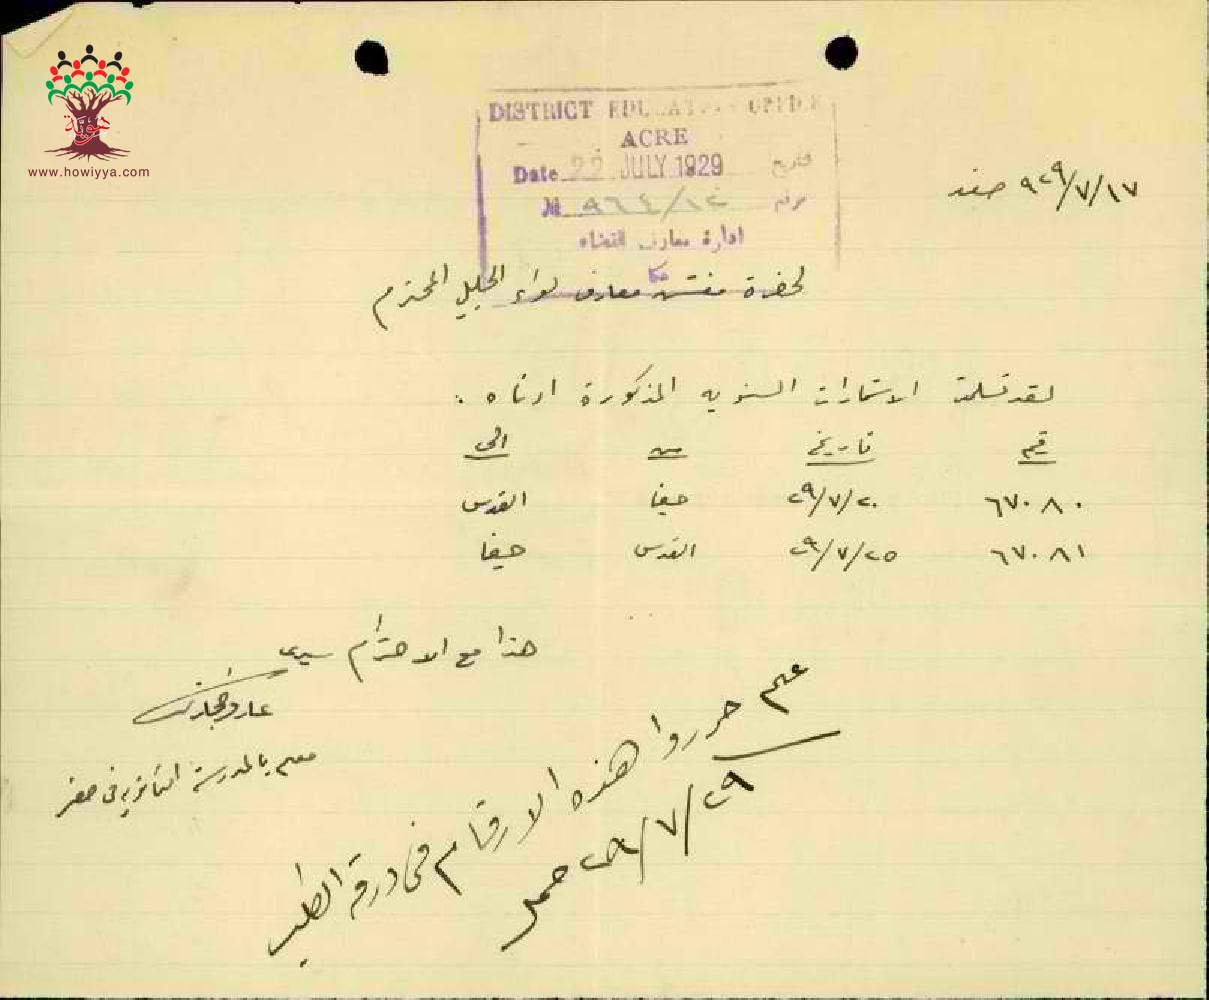 هوية
www.howiyya.com
DISTRICT EDUCATION OFFICE
ACRE
Date 22 JULY 1929 تاريخ
№ ٩٦٤/١٤ نمرة
ادارة معارف القضاء
صفد ١٧/٧/٩٢٩
لحضرة مفتش معارف لواء الجليل المحترم
عكا
لقد تسلمت الاستمارات السنوية المذكورة ادناه :
رقم تاريخ من الى
٦٧٠٨٠ ٢٠/٧/٢٩ حيفا القدس
٦٧٠٨١ ٢٥/٧/٢٩ القدس حيفا
هذا مع الاحترام سيدي
معلم بالمدرسة الثانوية في صفد
حرروا هذه الارقام في ورقة الطلب
٢٩/٧/٢٩